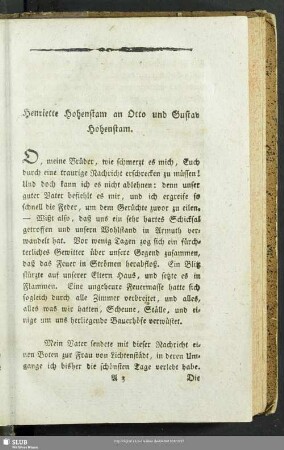 Henriette Hohenstam an Otto und Gustav
Hohenstam.
O, meine Brüder, wie schmerzt es mich, Euch
durch eine traurige Nachricht erschrecken zu müssen!
Und doch kann ich es nicht ablehnen: denn unser
guter Vater befiehlt es mir, und ich ergreife so
schnell die Feder, um dem Gerüchte zuvor zu eilen.
— Wißt also, daß uns ein sehr hartes Schicksal
getroffen und unsern Wohlstand in Armuth ver-
wandelt hat. Vor wenig Tagen zog sich ein fürch-
terliches Gewitter über unsre Gegend zusammen,
daß das Feuer in Strömen herabfloß. Ein Blitz
stürzte auf unserer Eltern Haus, und setzte es in
Flammen. Eine ungeheure Feuermasse hatte sich
sogleich durch alle Zimmer verbreitet, und alles,
alles was wir hatten, Scheune, Ställe, und ei-
nige um uns herliegende Bauerhöfe verwüstet.
Mein Vater sendete mit dieser Nachricht ei-
nen Boten zur Frau von Lichtenstädt, in deren Um-
gange ich bisher die schönsten Tage verlebt habe.
Die
SLUB
Wir führen Wissen.